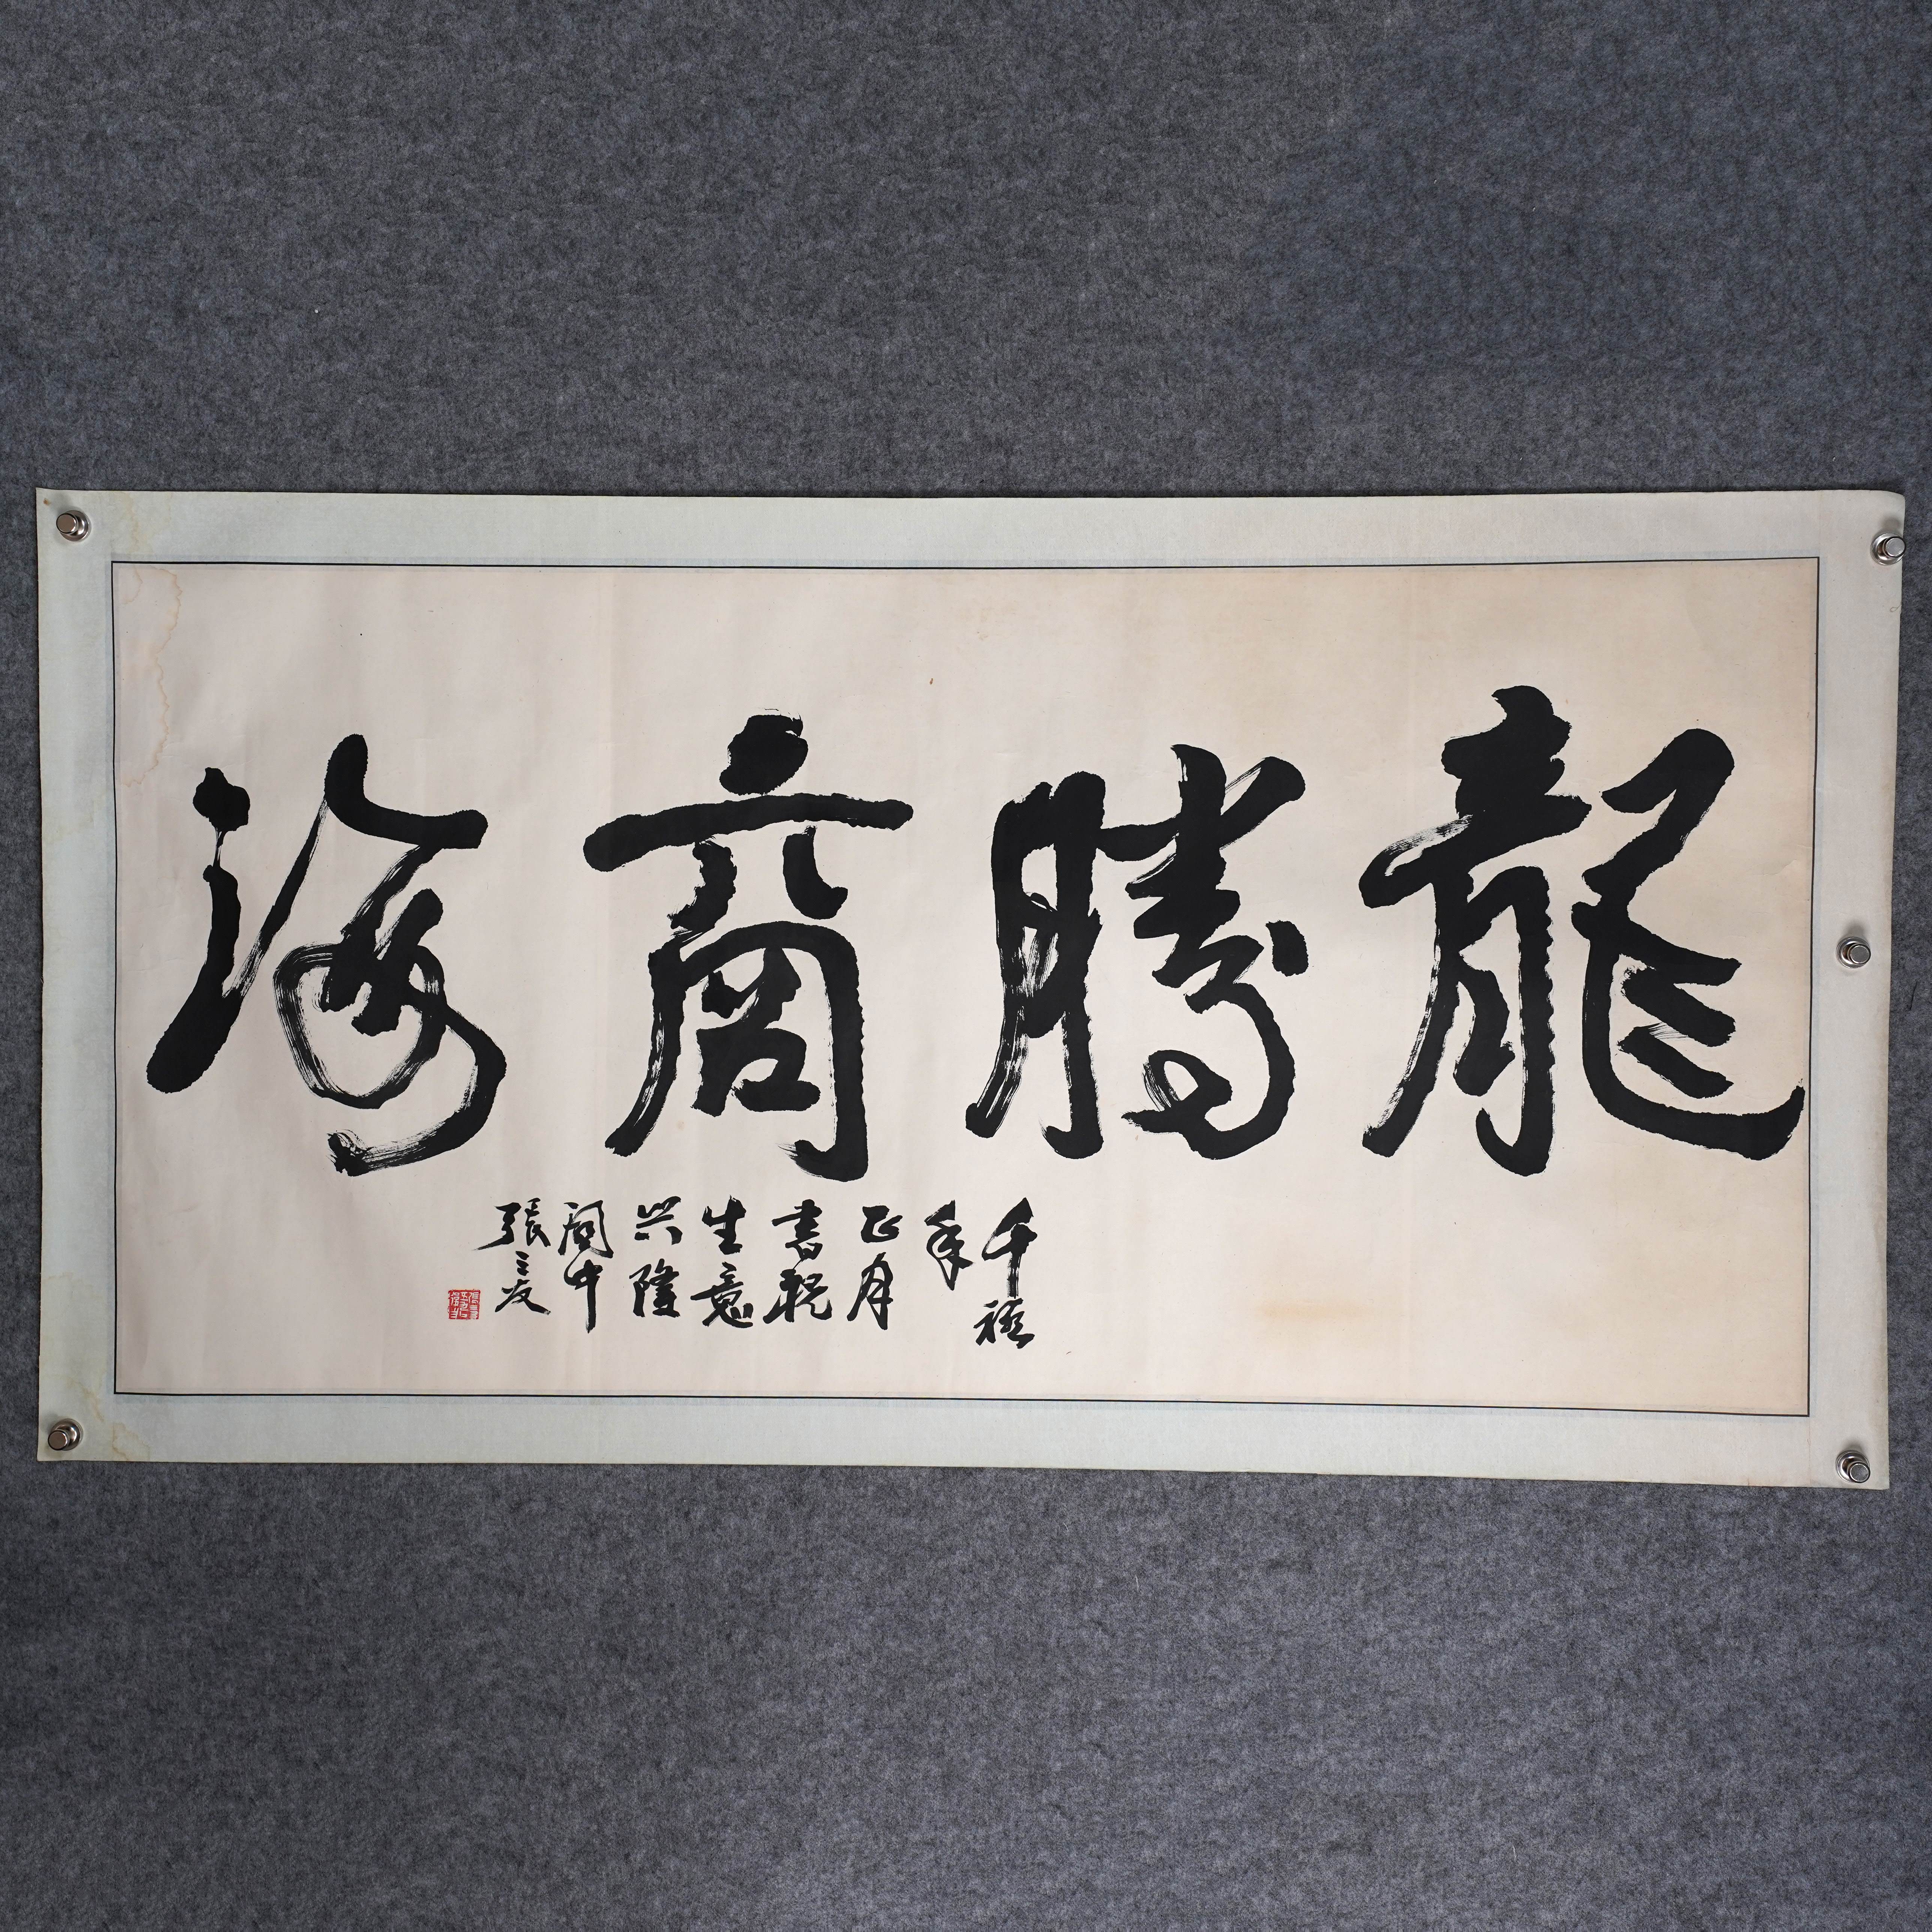 龍腾商海
千禧
年
正月
書祝
生意
兴隆
阆中
張三友